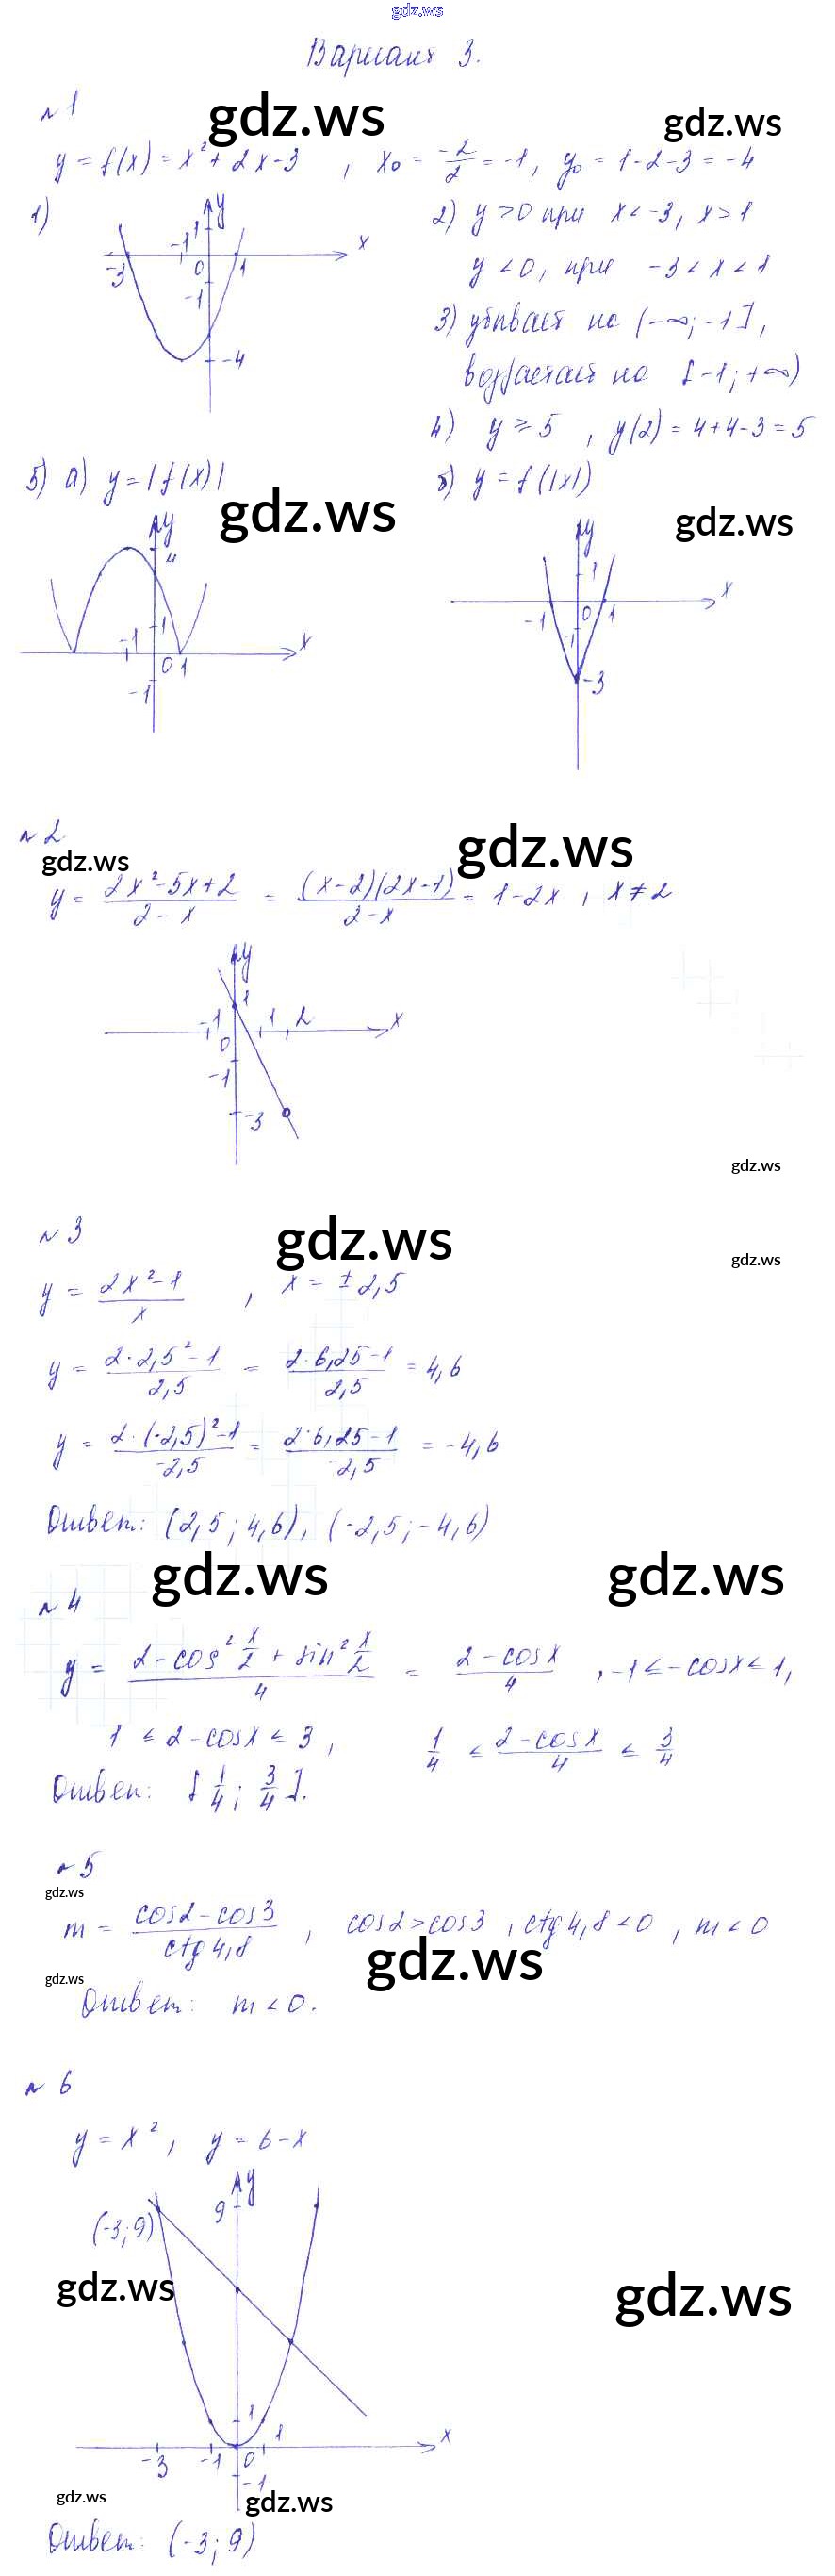 gdz.ws
Вариант 3.
№1
gdz.ws gdz.ws
y = f(x) = x² + 2x - 3 , x₀ = -2/2 = -1, y₀ = 1-2-3 = -4
1)
y
1
-1
x
-3
0
1
-1
-4
2) y > 0 при x < -3, x > 1
y < 0, при -3 < x < 1
3) убывает на (-∞; -1],
возрастает на [-1; +∞)
4) y ≥ 5 , y(2) = 4+4-3 = 5
5) а) y = |f(x)|
б) y = f(|x|)
gdz.ws gdz.ws
y
4
1
-1
x
0 1
-1
y
1
x
-1
0 1
-1
-3
№2
gdz.ws gdz.ws
y = (2x²-5x+2)/(2-x) = (x-2)(2x-1)/(2-x) = 1-2x , x ≠ 2
y
1
-1
1 2
x
0
-1
-3
gdz.ws
№3
gdz.ws gdz.ws
y = (2x²-1)/x , x = ±2,5
y = (2·2,5²-1)/2,5 = (2·6,25-1)/2,5 = 4,6
y = (2·(-2,5)²-1)/-2,5 = (2·6,25-1)/-2,5 = -4,6
Ответ: (2,5; 4,6), (-2,5; -4,6)
gdz.ws gdz.ws
№4
y = (2-cos² x/2 + sin² x/2)/4 = (2-cosx)/4 , -1 ≤ -cosx ≤ 1,
1 ≤ 2-cosx ≤ 3 , 1/4 ≤ (2-cosx)/4 ≤ 3/4
Ответ: [1/4; 3/4].
№5
gdz.ws
m = (cos2-cos3)/ctg4,8 , cos2 > cos3 , ctg4,8 < 0 , m < 0
gdz.ws gdz.ws
Ответ: m < 0.
№6
y = x² , y = 6-x
y
9
(-3; 9)
gdz.ws gdz.ws
1
1
x
-3
-1
0
-1
gdz.ws gdz.ws
Ответ: (-3; 9)